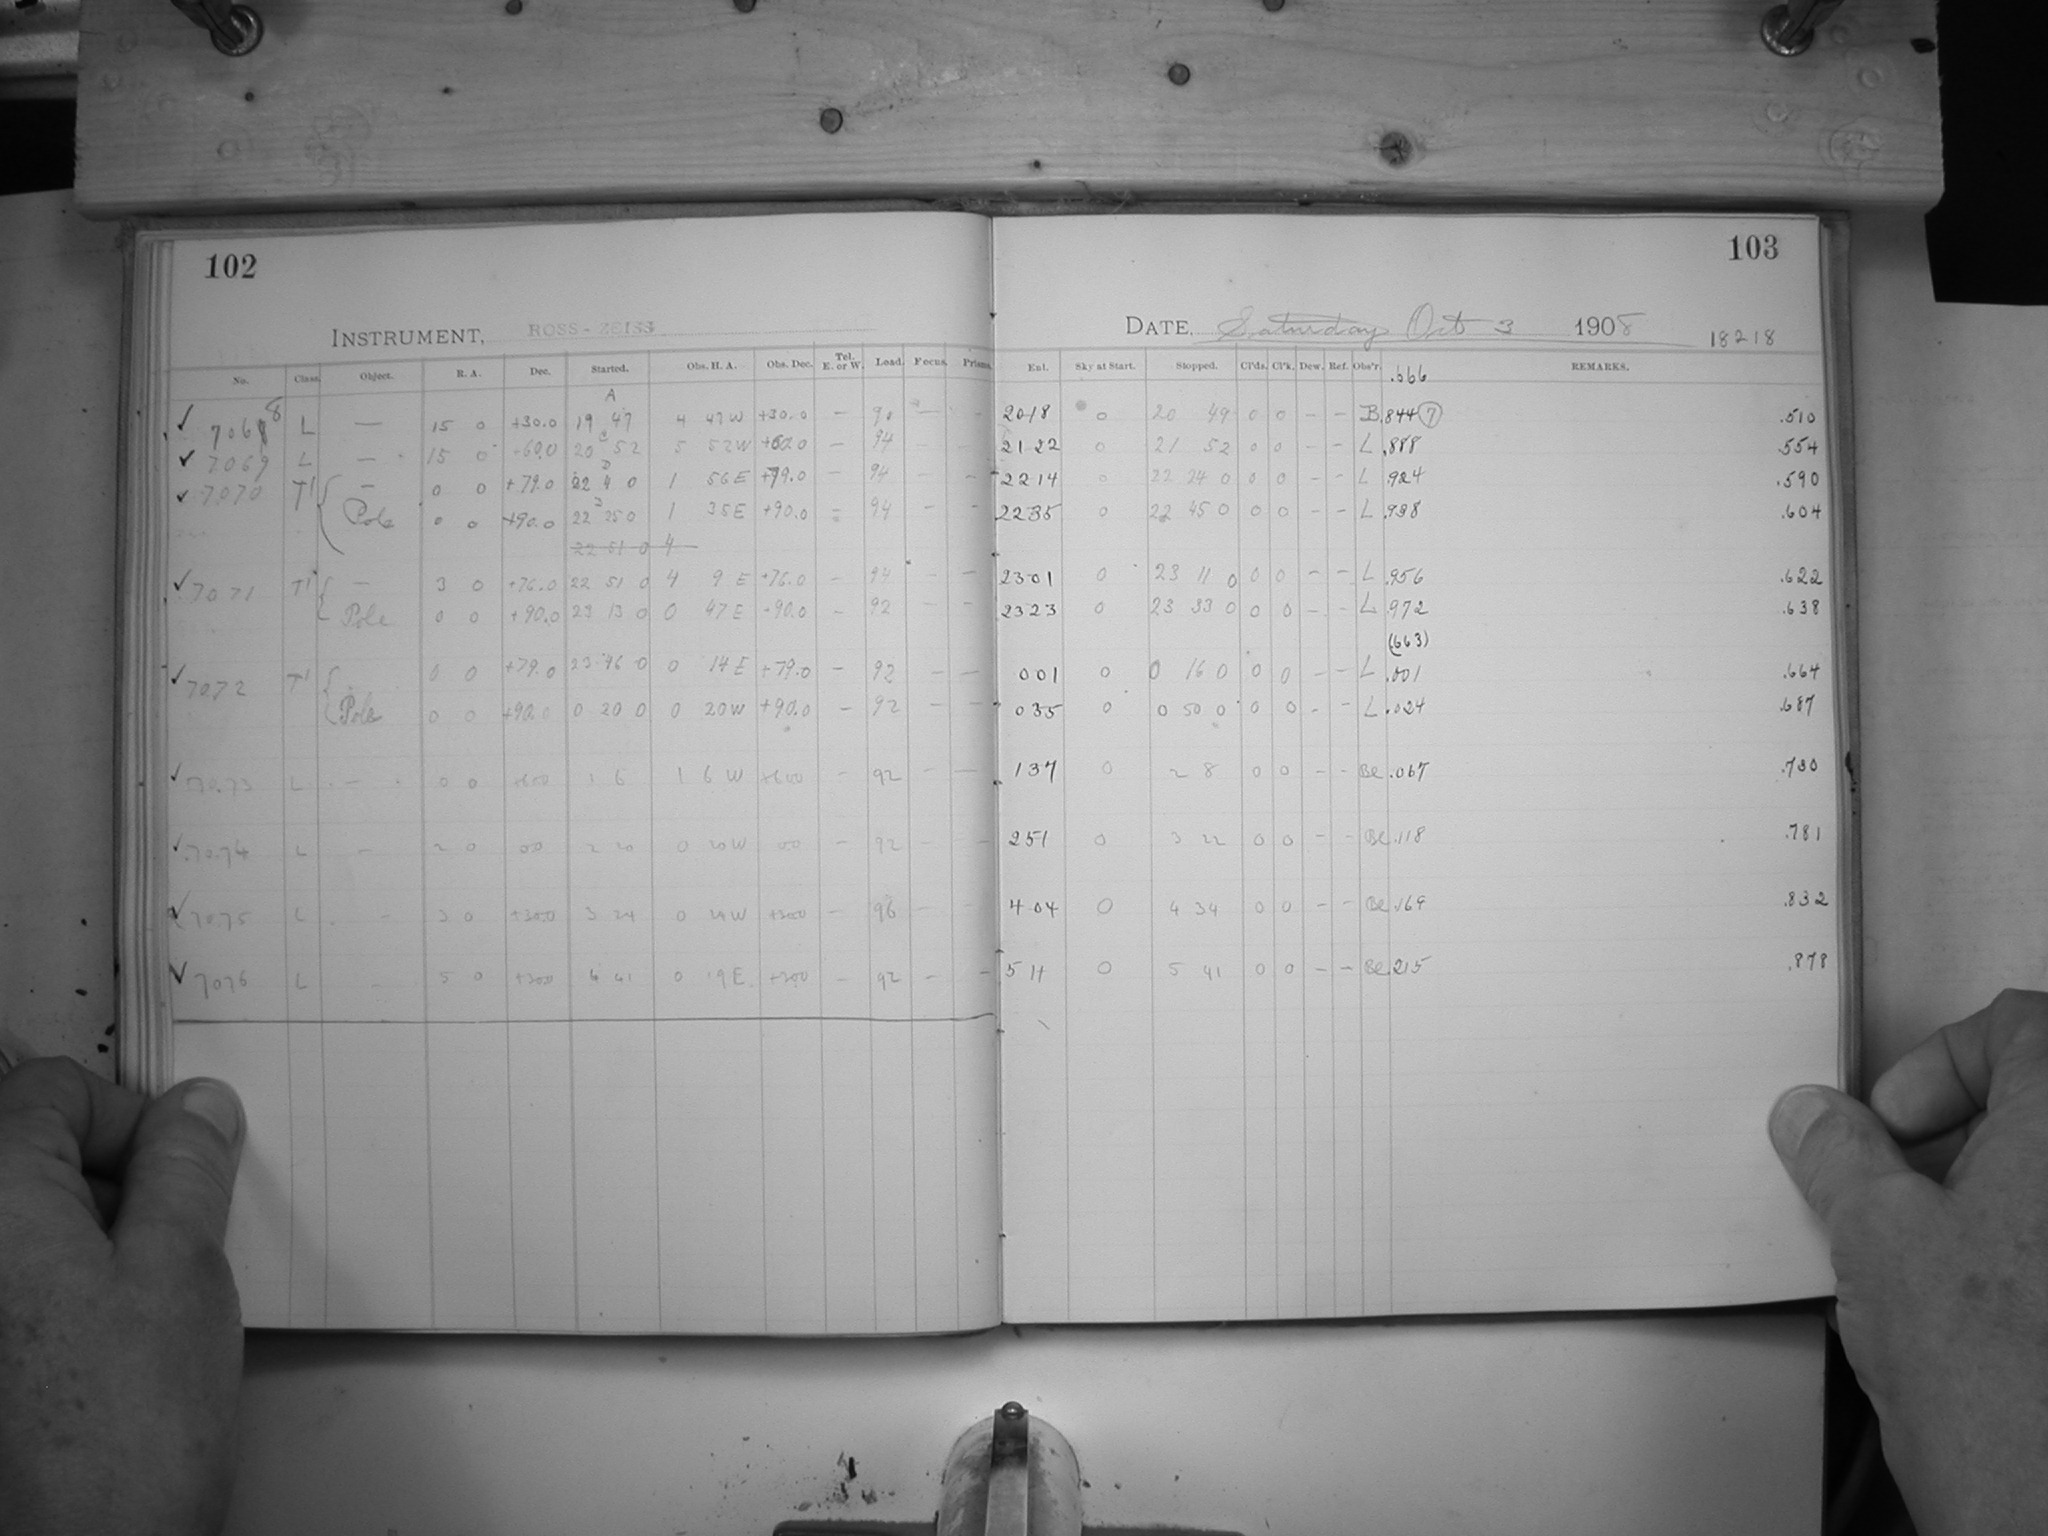 102
103
INSTRUMENT, ROSS-ZEISS
DATE, Saturday Oct 3 1908
18218
No. Class. Object. R. A. Dec. Started. Obs. H. A. Obs. Dec. Tel. E. or W. Load. Focus. Prisms. Ent. Sky at Start. Stopped. Cl'ds. Cl'k. Dew. Ref. Obs'r. .666 REMARKS.
A
✓ 7068 8 L — 15 0 +30.0 19 47 4 47 W +30.0 — 90 — - 2018 0 20 49 0 0 - - B .844 7 .510
✓ 7069 L — 15 0 +60.0 20 52 5 52 W +60.0 — 94 2122 0 21 52 0 0 - - L .888 .554
✓ 7070 T' — 0 0 +79.0 22 4 0 1 56 E +79.0 — 94 - - 2214 0 22 24 0 0 0 - - L .924 .590
Pole 0 0 +90.0 22 25 0 1 35 E +90.0 — 94 - - 2235 0 22 45 0 0 0 - - L .938 .604
22 51 0 4
✓ 7071 T' — 3 0 +76.0 22 51 0 4 9 E +76.0 — 94 - - 2301 0 23 11 0 0 0 - - L .956 .622
Pole 0 0 +90.0 23 13 0 0 47 E +90.0 — 92 - - 2323 0 23 33 0 0 0 - - L .972 .638
(663)
✓ 7072 T' 0 0 +79.0 23 46 0 0 14 E +79.0 — 92 - - 001 0 0 16 0 0 0 - - L .001 .664
Pole 0 0 +90.0 0 20 0 0 20 W +90.0 — 92 - - 035 0 0 50 0 0 0 - - L .024 .687
✓ 7073 L — 0 0 +600 1 6 1 6 W +600 — 92 - - 137 0 2 8 0 0 - - Be .067 .730
✓ 7074 L — 2 0 00 2 20 0 20 W 00 — 92 - - 251 0 3 22 0 0 - - Be .118 .781
✓ 7075 L - 3 0 +300 3 24 0 24 W +300 — 96 - - 404 0 4 34 0 0 - - Be .169 .832
✓ 7076 L - 5 0 +300 4 41 0 19 E +300 — 92 - - 511 0 5 41 0 0 - - Be .215 .878